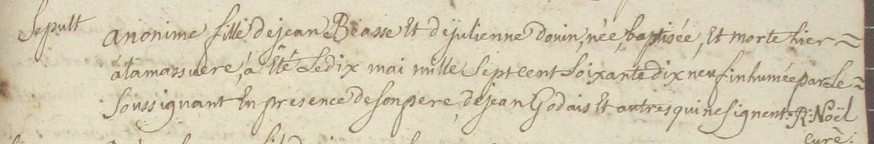 Sepult anonime fille de jean Beasse Et de julienne douin, née, baptisée, Et morte hier =
à la massuere, à Eté Le dix mai mille Sept cent Soixante dix neuf inhumée par Le =
Soussignant En presence de son pere, de jean Godais Et autres qui ne signent. R: Noël
curé.